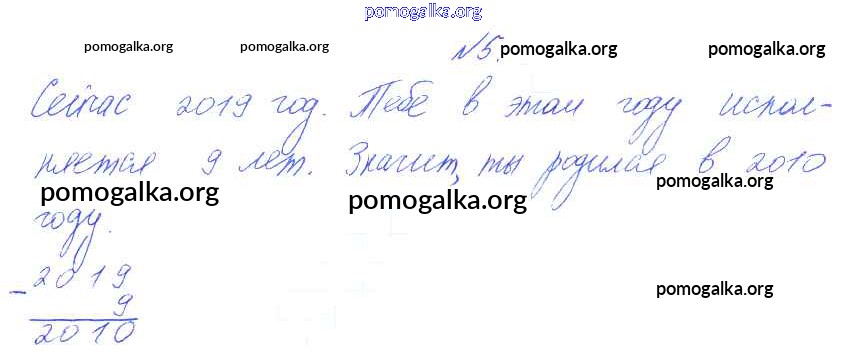 pomogalka.org
pomogalka.org pomogalka.org №5. pomogalka.org pomogalka.org
Сейчас 2019 год. Тебе в этом году испол-
няется 9 лет. Значит, ты родился в 2010
pomogalka.org pomogalka.org pomogalka.org
году.
- 2019
9 pomogalka.org
2010